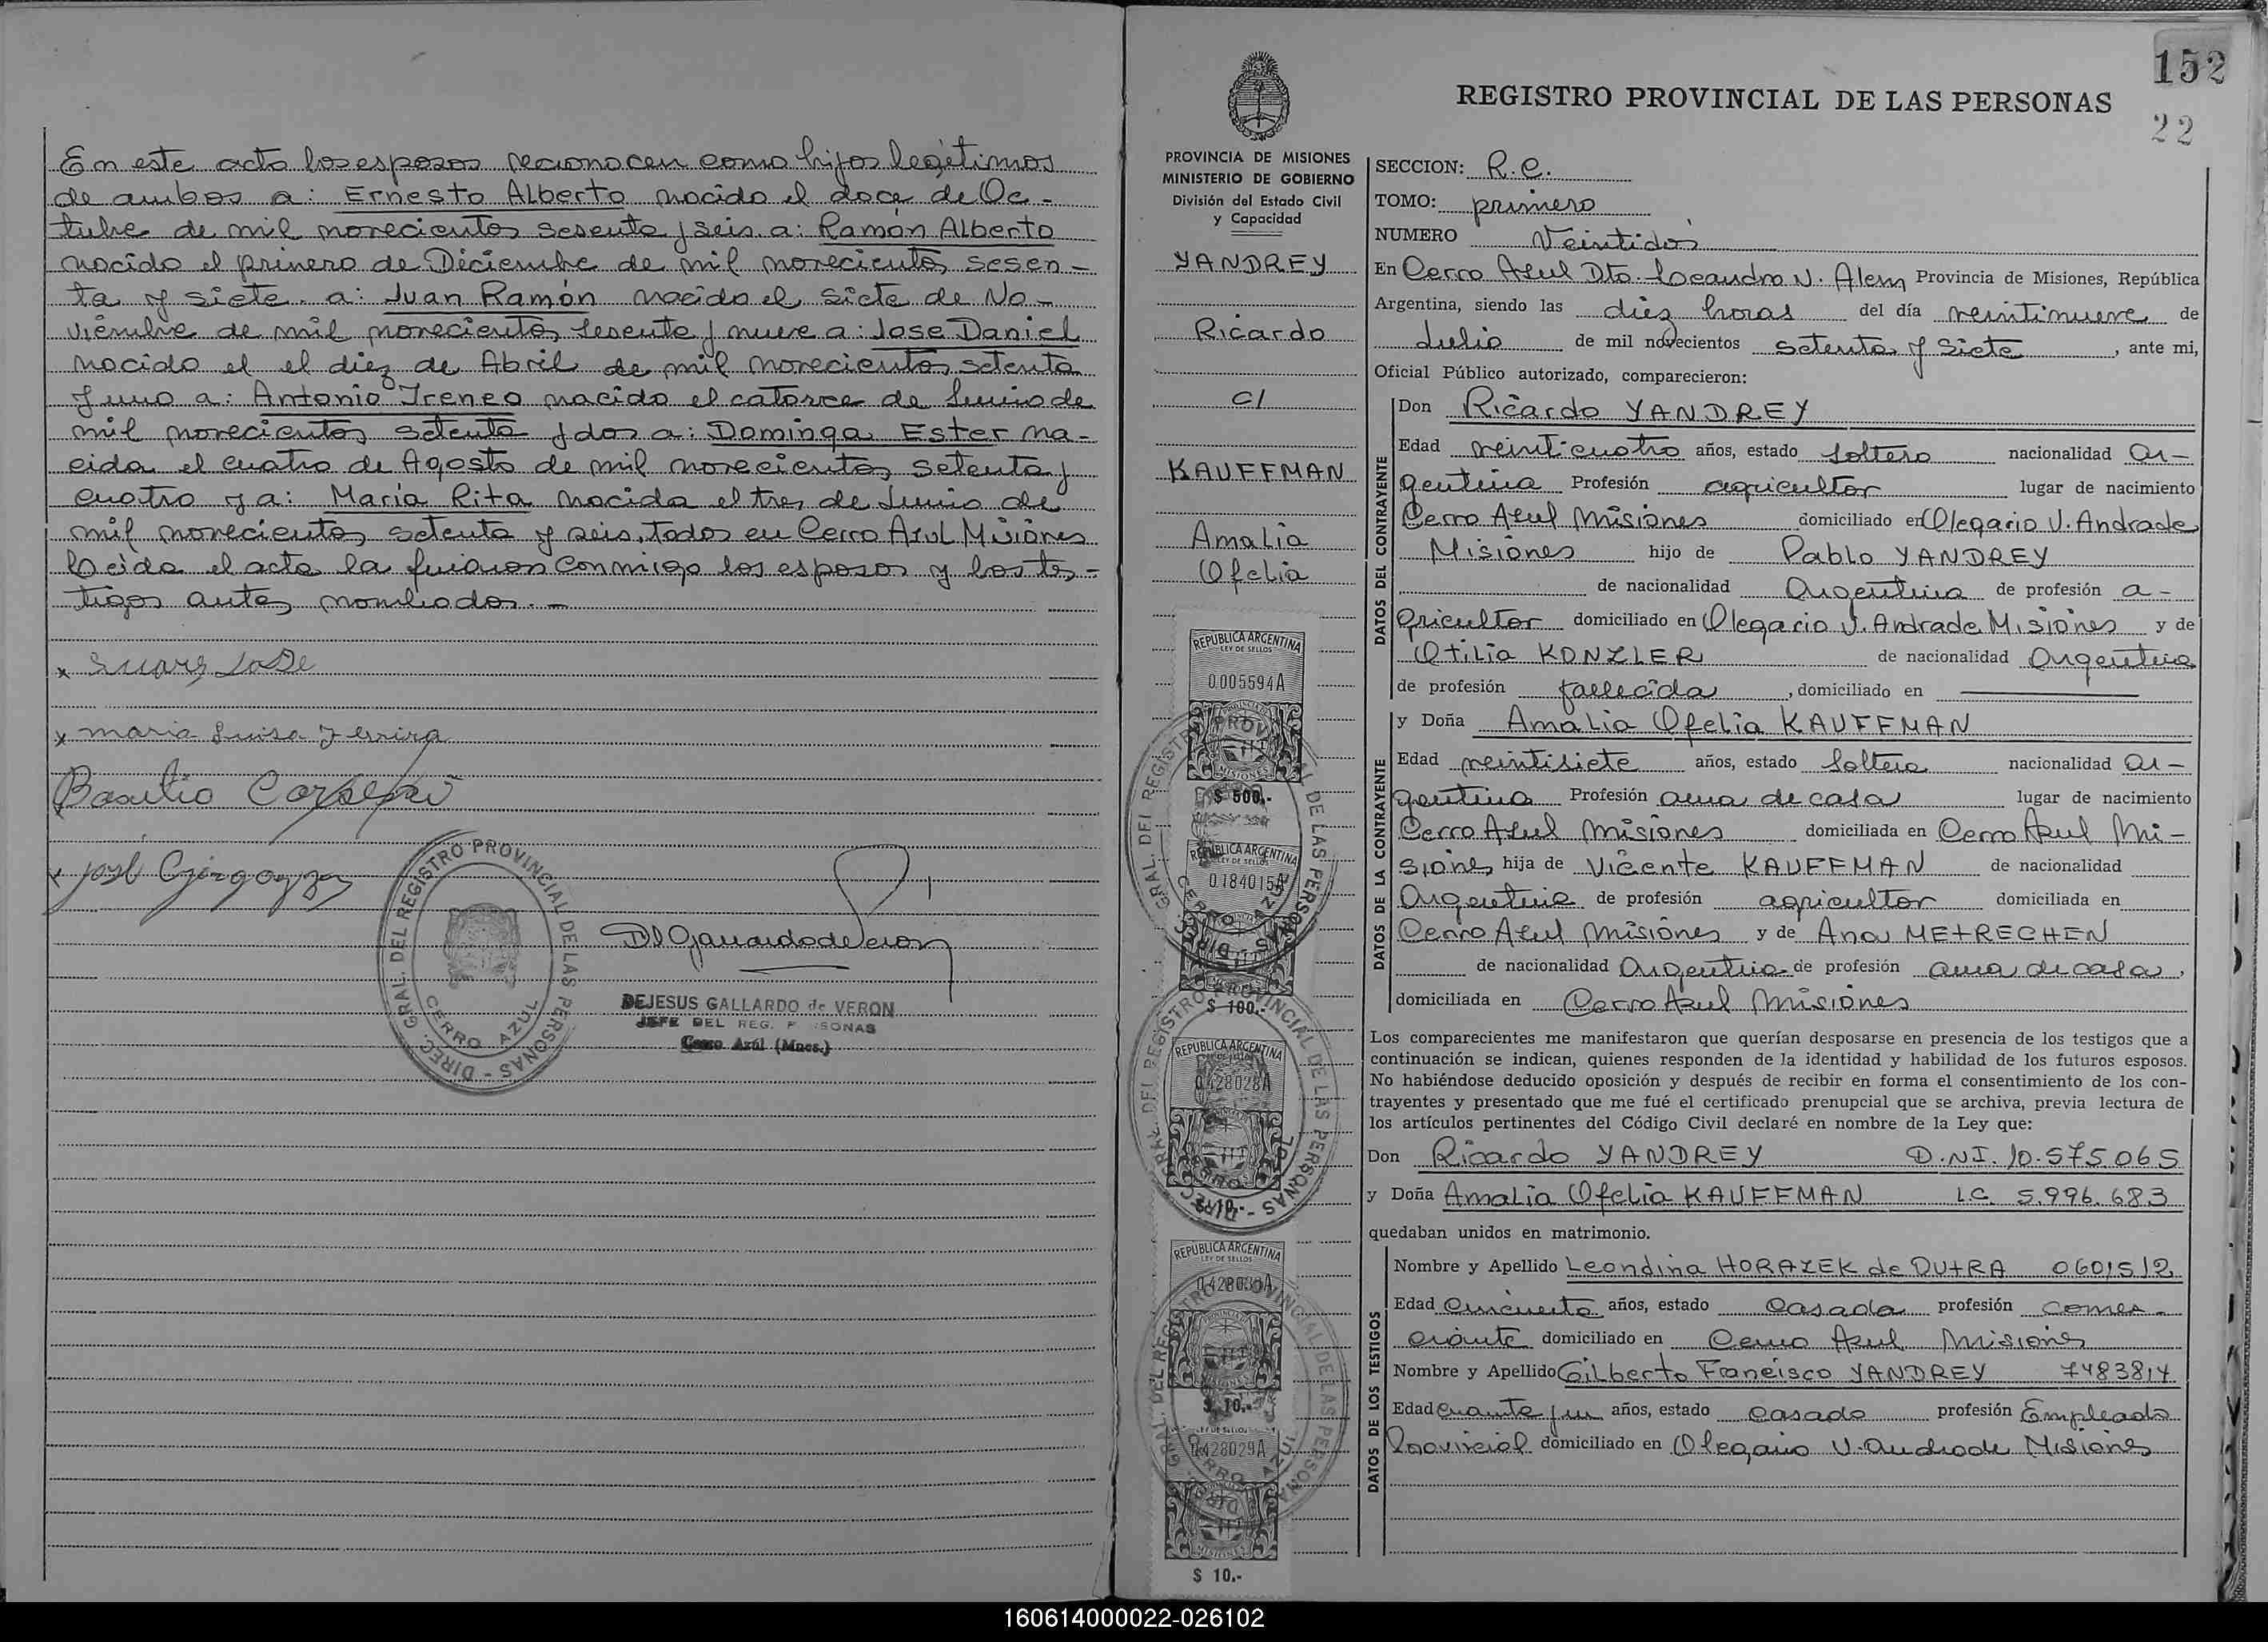 En este acto los esposos reconocen como hijos legítimos
de ambos a: Ernesto Alberto nacido el doce de Oc-
tubre de mil novecientos sesenta y seis. a: Ramón Alberto
nacido el primero de Diciembre de mil novecientos sesen-
ta y siete. a: Juan Ramón nacido el siete de No-
viembre de mil novecientos sesenta y nueve a: Jose Daniel
nacido el el diez de Abril de mil novecientos setenta
y uno a: Antonio Ireneo nacido el catorce de Junio de
mil novecientos setenta y dos a: Dominga Ester na-
cida el cuatro de Agosto de mil novecientos setenta y
cuatro y a: María Rita nacida el tres de Junio de
mil novecientos setenta y seis, todos en Cerro Azul Misiones
Leída el acta la firmaron conmigo los esposos y los tes-
tigos antes nombrados.-
x Suarez Jose
x maria Luisa Ferrira
Basilio
x José
DIREC. GRAL. DEL REGISTRO PROVINCIAL DE LAS PERSONAS -
CERRO AZUL
DEJESUS GALLARDO de VERON
JEFE DEL REG. P SONAS
Cerro Azul (Mnes.)
152
22
REGISTRO PROVINCIAL DE LAS PERSONAS
PROVINCIA DE MISIONES
MINISTERIO DE GOBIERNO
División del Estado Civil
y Capacidad
YANDREY
Ricardo
c/
KAUFFMAN
Amalia
Ofelia
REPUBLICA ARGENTINA
LEY DE SELLOS
0.005594A
MISIONES
$ 500.-
REPUBLICA ARGENTINA
LEY DE SELLOS
0.184015A
$ 100.-
REPUBLICA ARGENTINA
0.428028A
$ 10.-
REPUBLICA ARGENTINA
LEY DE SELLOS
0.428030A
$ 10.-
0.428029A
MISIONES
$ 10.-
SECCION: R.C.
TOMO: primero
NUMERO Veintidós
En Cerro Azul Dto. Leandro N. Alem Provincia de Misiones, República
Argentina, siendo las diez horas del día veintinueve de
Julio de mil novecientos setenta y siete, ante mi,
Oficial Público autorizado, comparecieron:
DATOS DEL CONTRAYENTE
Don Ricardo YANDREY
Edad veinticuatro años, estado soltero nacionalidad Ar-
gentina Profesión agricultor lugar de nacimiento
Cerro Azul Misiones domiciliado en Olegario V. Andrade
Misiones hijo de Pablo YANDREY
de nacionalidad Argentina de profesión a-
gricultor domiciliado en Olegario V. Andrade Misiones y de
Otilia KONZLER de nacionalidad Argentina
de profesión fallecida, domiciliado en
DATOS DE LA CONTRAYENTE
y Doña Amalia Ofelia KAUFFMAN
Edad veintisiete años, estado soltera nacionalidad Ar-
gentina Profesión ama de casa lugar de nacimiento
Cerro Azul Misiones domiciliada en Cerro Azul Mi-
siones hija de Vicente KAUFFMAN de nacionalidad
Argentina de profesión agricultor domiciliada en
Cerro Azul Misiones y de Ana METRECHEN
de nacionalidad Argentina de profesión ama de casa,
domiciliada en Cerro Azul Misiones
Los comparecientes me manifestaron que querían desposarse en presencia de los testigos que a
continuación se indican, quienes responden de la identidad y habilidad de los futuros esposos.
No habiéndose deducido oposición y después de recibir en forma el consentimiento de los con-
trayentes y presentado que me fué el certificado prenupcial que se archiva, previa lectura de
los artículos pertinentes del Código Civil declaré en nombre de la Ley que:
Don Ricardo YANDREY D.N.I. 10.575.065
y Doña Amalia Ofelia KAUFFMAN L.C. 5.996.683
quedaban unidos en matrimonio.
DATOS DE LOS TESTIGOS
Nombre y Apellido Leondina HORAZEK de DUTRA 0601512
Edad Cincuenta años, estado Casada profesión comer-
ciante domiciliado en Cerro Azul Misiones
Nombre y Apellido Gilberto Francisco YANDREY 7483814
Edad cuarenta y un años, estado Casado profesión Empleado
Provincial domiciliado en Olegario V. Andrade Misiones
160614000022-026102